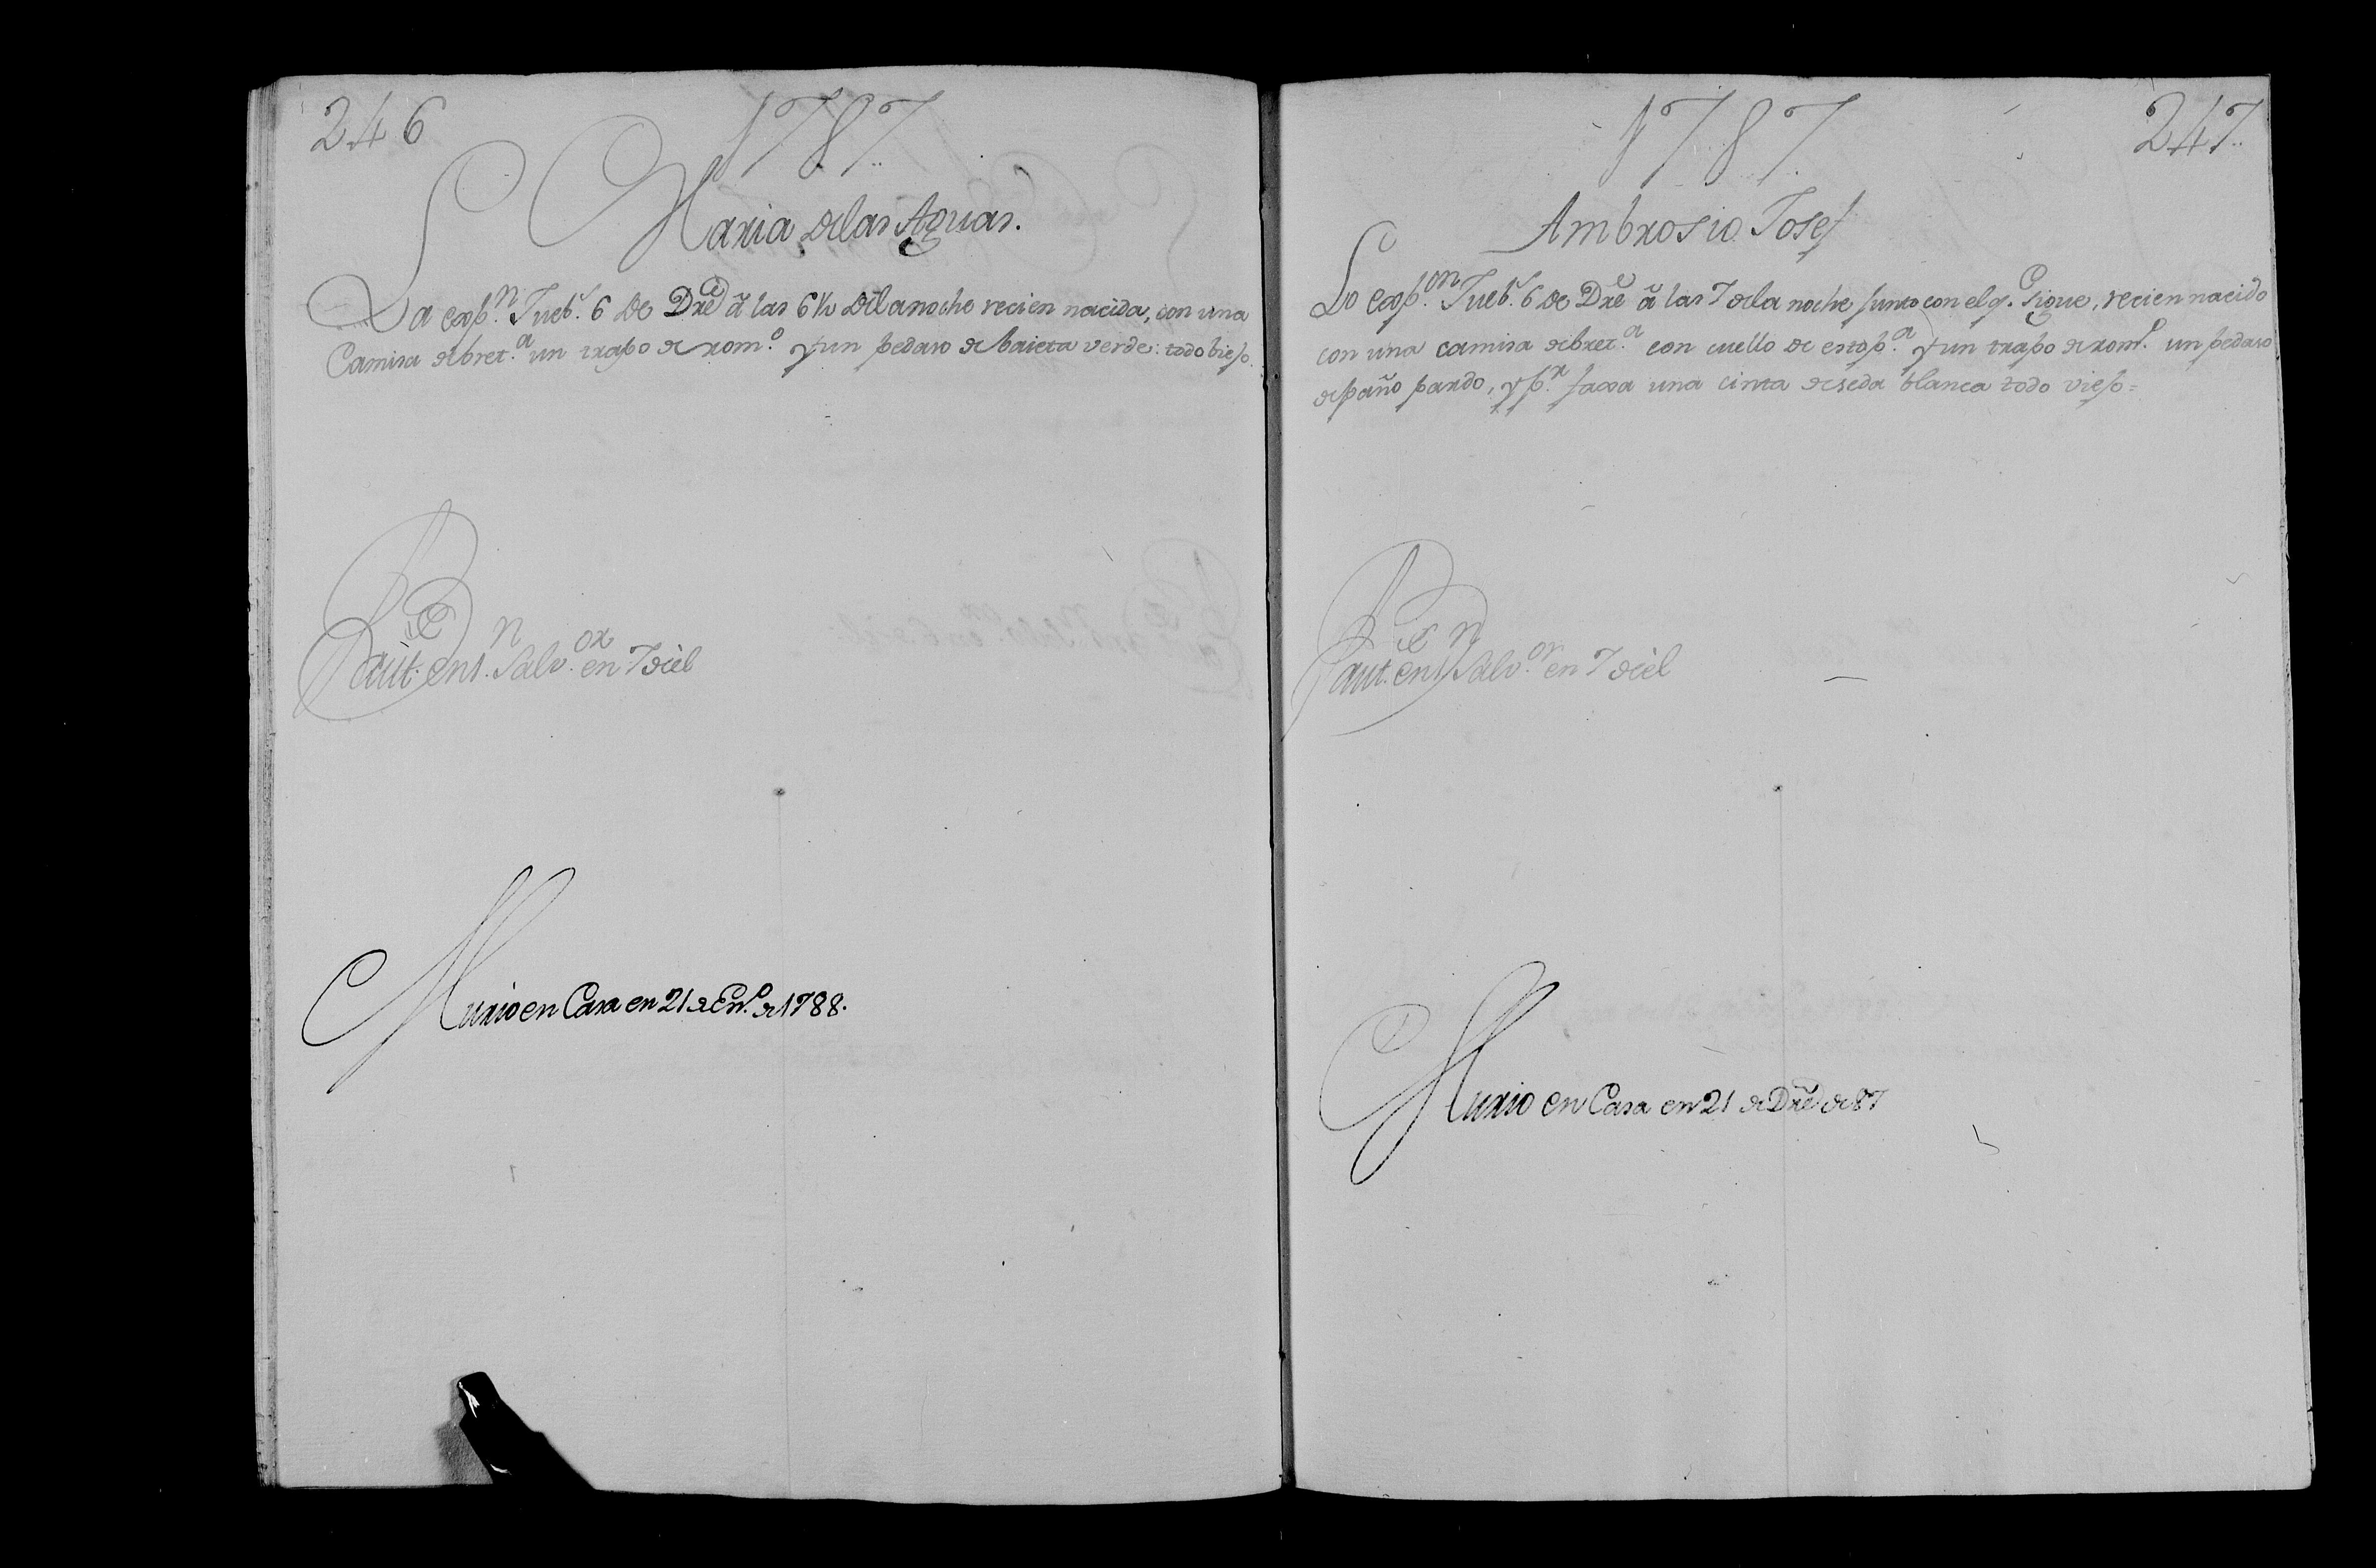 246
1787
Maria delas Aguas.
La exp.n Jueb.s 6 de Dre a las 6½ dela noche recien nacida, con una
Camisa de bret.a un trapo de rom.o y un pedaso de baieta verde: todo biejo.
Baut. en S.n Salv.or en 7 del
Murio en Casa en 21 de En.o de 1788.
1787
247
Ambrosio Josef
Lo exp.on Jueb.s 6 de Dre a las 7 dela noche junto con el q.e sigue, recien nacido
con una camisa de bret.a con cuello de estop.a y un trapo de rom.o un pedaso
de paño pardo, y p.r faxa una cinta de seda blanca todo viejo=
Baut. en S.n Salv.or en 7 del
Murio en Casa en 21 de Dre de 87